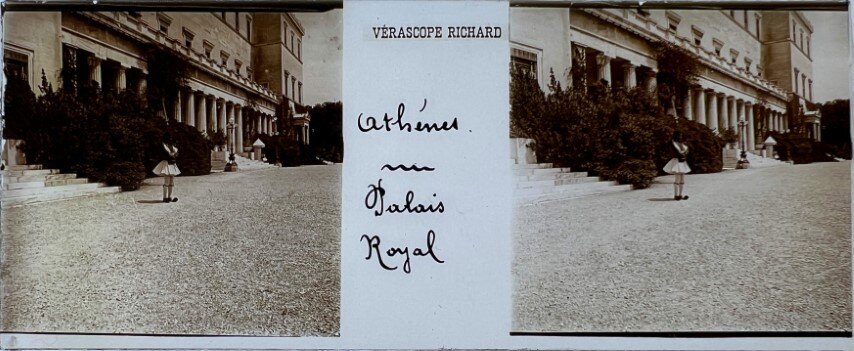 VÉRASCOPE RICHARD
Athénes.
Palais
Royal